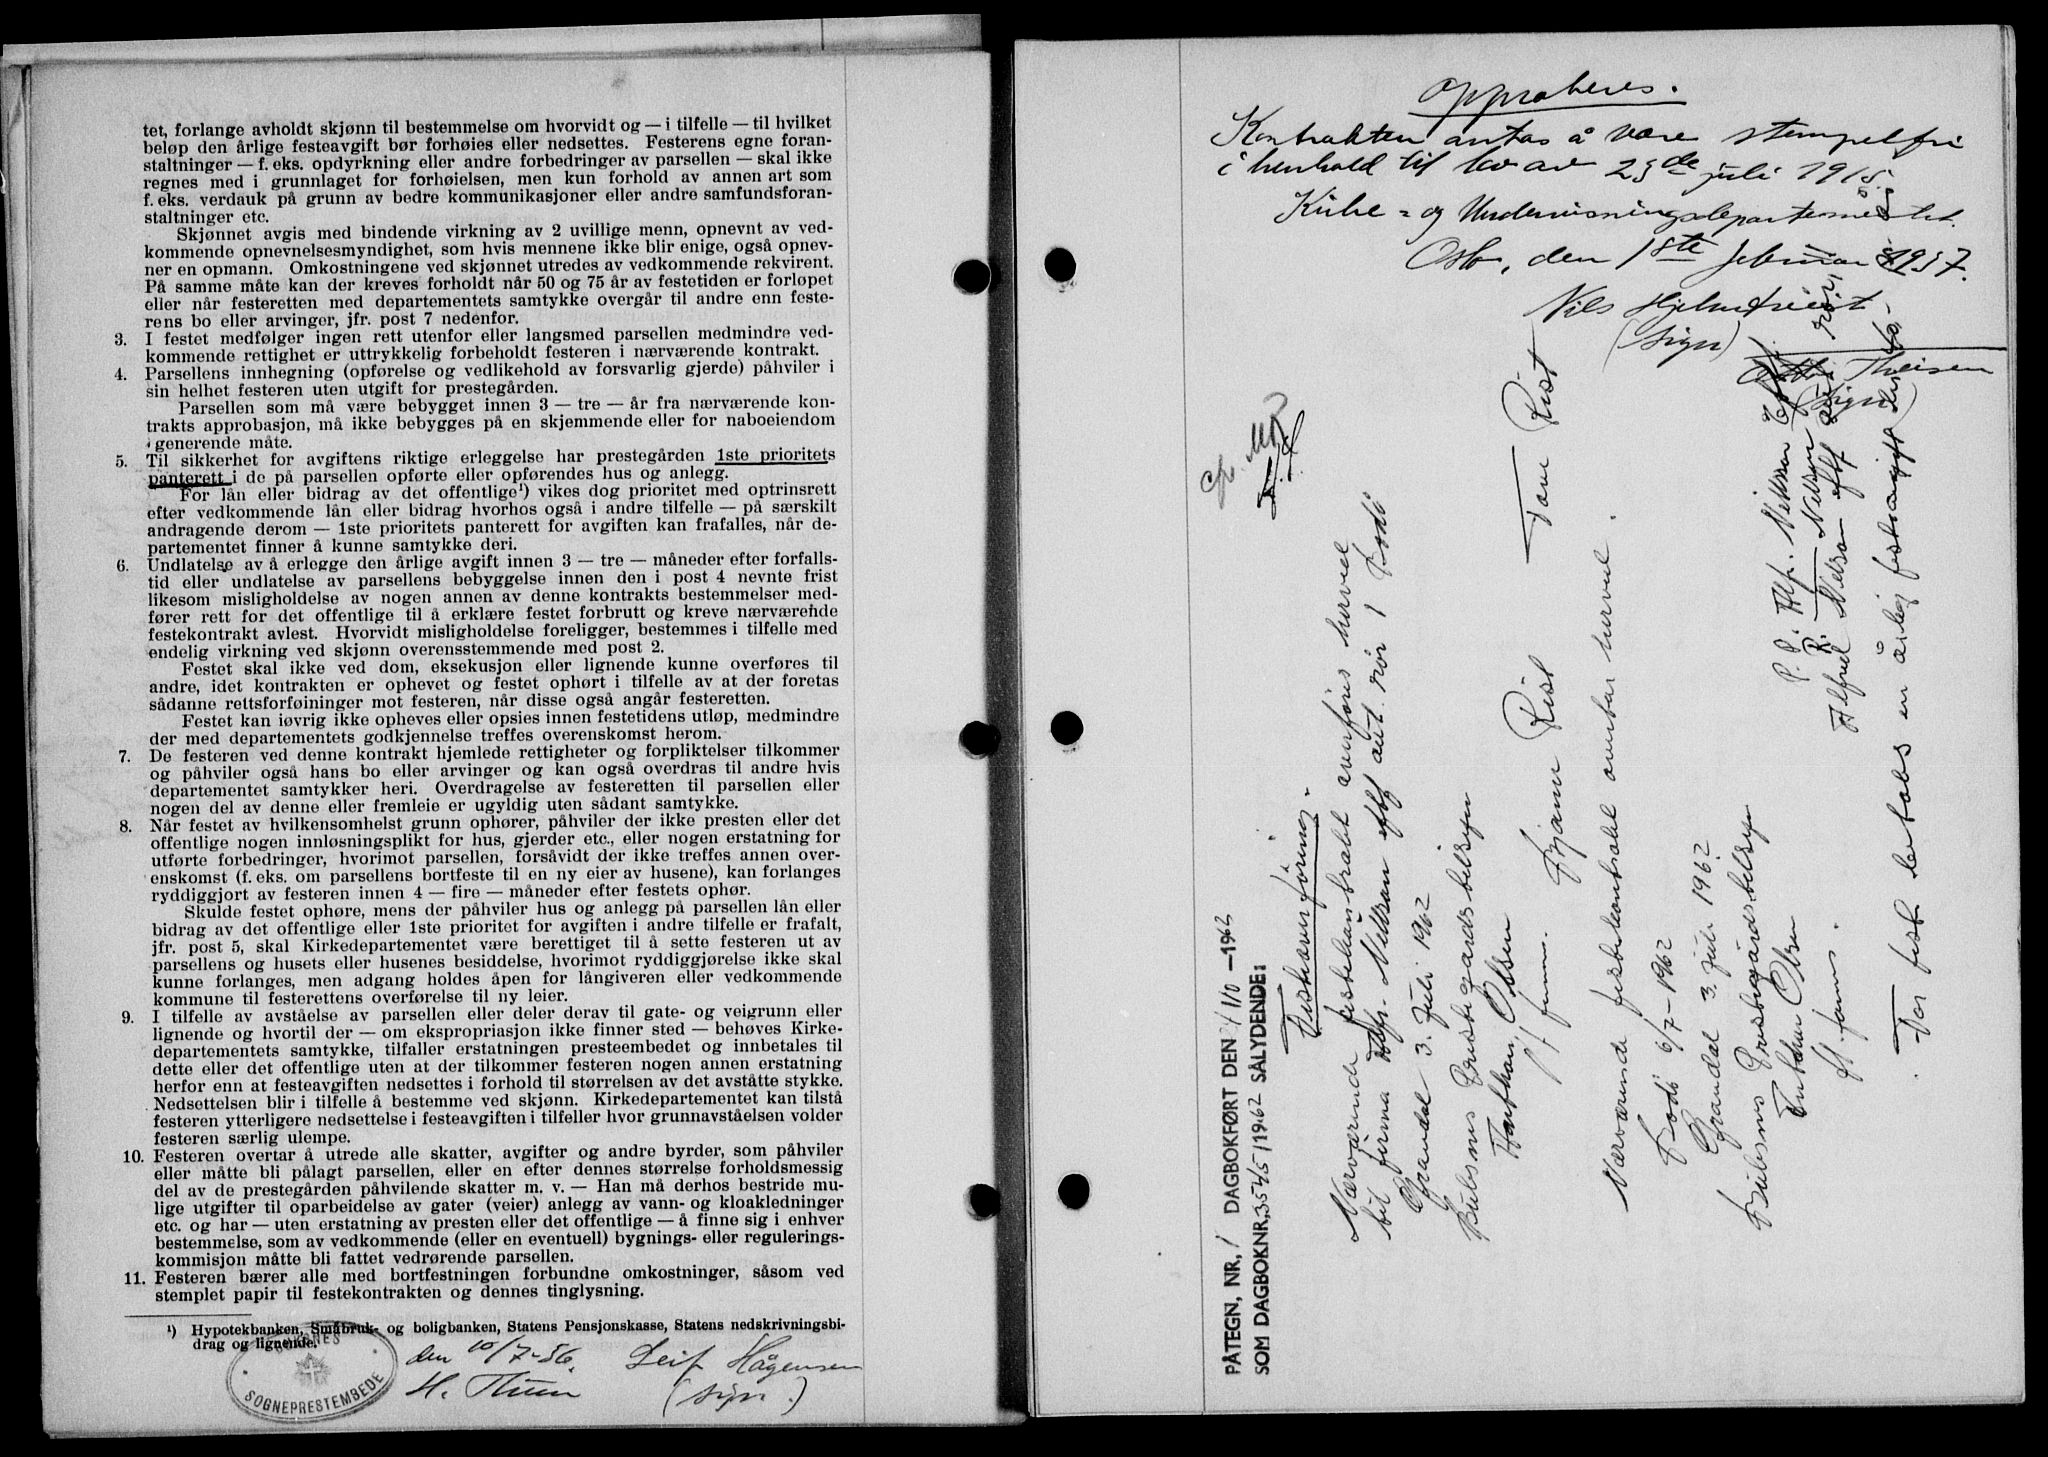 tet, forlange avholdt skjønn til bestemmelse om hvorvidt og — i tilfelle — til hvilket
beløp den årlige festeavgift bør forhøies eller nedsettes. Festerens egne foran-
staltninger — f. eks. opdyrkning eller andre forbedringer av parsellen — skal ikke
regnes med i grunnlaget for forhøielsen, men kun forhold av annen art som
f. eks. verdauk på grunn av bedre kommunikasjoner eller andre samfundsforan-
staltninger etc.
Skjønnet avgis med bindende virkning av 2 uvillige menn, opnevnt av ved-
kommende opnevnelsesmyndighet, som hvis mennene ikke blir enige, også opnev-
ner en opmann. Omkostningene ved skjønnet utredes av vedkommende rekvirent.
På samme måte kan der kreves forholdt når 50 og 75 år av festetiden er forløpet
eller når festeretten med departementets samtykke overgår til andre enn feste-
rens bo eller arvinger, jfr. post 7 nedenfor.
3. I festet medfølger ingen rett utenfor eller langsmed parsellen medmindre ved-
kommende rettighet er uttrykkelig forbeholdt festeren i nærværende kontrakt.
4. Parsellens innhegning (opførelse og vedlikehold av forsvarlig gjerde) påhviler i
sin helhet festeren uten utgift for prestegården.
Parsellen som må være bebygget innen 3 — tre — år fra nærværende kon-
trakts approbasjon, må ikke bebygges på en skjemmende eller for naboeiendom
generende måte.
5. Til sikkerhet for avgiftens riktige erleggelse har prestegården 1ste prioritets
panterett i de på parsellen opførte eller opførendes hus og anlegg.
For lån eller bidrag av det offentlige¹) vikes dog prioritet med optrinsrett
efter vedkommende lån eller bidrag hvorhos også i andre tilfelle — på særskilt
andragende derom — 1ste prioritets panterett for avgiften kan frafalles, når de-
partementet finner å kunne samtykke deri.
6. Undlatelse av å erlegge den årlige avgift innen 3 — tre — måneder efter forfalls-
tid eller undlatelse av parsellens bebyggelse innen den i post 4 nevnte frist
likesom misligholdelse av nogen annen av denne kontrakts bestemmelser med-
fører rett for det offentlige til å erklære festet forbrutt og kreve nærværende
festekontrakt avlest. Hvorvidt misligholdelse foreligger, bestemmes i tilfelle med
endelig virkning ved skjønn overensstemmende med post 2.
Festet skal ikke ved dom, eksekusjon eller lignende kunne overføres til
andre, idet kontrakten er ophevet og festet ophørt i tilfelle av at der foretas
sådanne rettsforføininger mot festeren, når disse også angår festeretten.
Festet kan iøvrig ikke opheves eller opsies innen festetidens utløp, medmindre
der med departementets godkjennelse treffes overenskomst herom.
7. De festeren ved denne kontrakt hjemlede rettigheter og forpliktelser tilkommer
og påhviler også hans bo eller arvinger og kan også overdras til andre hvis
departementet samtykker heri. Overdragelse av festeretten til parsellen eller
nogen del av denne eller fremleie er ugyldig uten sådant samtykke.
8. Når festet av hvilkensomhelst grunn ophører, påhviler der ikke presten eller det
offentlige nogen innløsningsplikt for hus, gjerder etc., eller nogen erstatning for
utførte forbedringer, hvorimot parsellen, forsåvidt der ikke treffes annen over-
enskomst (f. eks. om parsellens bortfeste til en ny eier av husene), kan forlanges
ryddiggjort av festeren innen 4 — fire — måneder efter festets ophør.
Skulde festet ophøre, mens der påhviler hus og anlegg på parsellen lån eller
bidrag av det offentlige eller 1ste prioritet for avgiften i andre tilfelle er frafalt,
jfr. post 5, skal Kirkedepartementet være berettiget til å sette festeren ut av
parsellens og husets eller husenes besiddelse, hvorimot ryddiggjørelse ikke skal
kunne forlanges, men adgang holdes åpen for långiveren eller vedkommende
kommune til festerettens overførelse til ny leier.
9. I tilfelle av avståelse av parsellen eller deler derav til gate- og veigrunn eller
lignende og hvortil der — om ekspropriasjon ikke finner sted — behøves Kirke-
departementets samtykke, tilfaller erstatningen presteembedet og innbetales til
dette eller det offentlige uten at der tilkommer festeren nogen annen erstatning
herfor enn at festeavgiften nedsettes i forhold til størrelsen av det avståtte stykke.
Nedsettelsen blir i tilfelle å bestemme ved skjønn. Kirkedepartementet kan tilstå
festeren ytterligere nedsettelse i festeavgiften i tilfeller hvor grunnavståelsen volder
festeren særlig ulempe.
10. Festeren overtar å utrede alle skatter, avgifter og andre byrder, som påhviler
eller måtte bli pålagt parsellen, eller en efter dennes størrelse forholdsmessig
del av de prestegården påhvilende skatter m. v. — Han må derhos bestride mu-
lige utgifter til oparbeidelse av gater (veier) anlegg av vann- og kloakledninger
etc. og har — uten erstatning av presten eller det offentlige — å finne sig i enhver
bestemmelse, som av vedkommende (eller en eventuell) bygnings- eller regulerings-
kommisjon måtte bli fattet vedrørende parsellen.
11. Festeren bærer alle med bortfestningen forbundne omkostninger, såsom ved
stemplet papir til festekontrakten og dennes tinglysning.
¹) Hypotekbanken, Småbruk- og boligbanken, Statens Pensjonskasse, Statens nedskrivningsbi-
drag og lignende.
SOGNEPRESTEMBEDE
den 10/7-36. Leif Hågensen
H. Thuin (sign.)
Approberes.
Kontrakten antas å være stempelfri
i henhold til lov av 23de juli 1915.
Kirke- og Undervisningsdepartementet.
Oslo, den 18te februar 1937.
Nils Hjelmtveit
(sign)
Theisen
(sign)
PÅTEGN. NR. 1 DAGBOKFØRT DEN 4/10-1962
SOM DAGBOKNR. 3545/1962 SÅLYDENDE:
Festeoverføring.
Nærværende festekontrakt overføres herved
til firma Alfr. Nilsson eftf aut. rør i Bodø
Grandal 3. juli 1962
Olsen
f. f. Bjarne Rist Tove Rist
Nærværende festekontrakt overtar herved.
Bodø 6/7-1962
Grandal 3. juli 1962
P. P. Alf. Nilsson Eftf.
R. Nilsson
Alfred Nilsson eftf aut rør
Olsen
For festet betales en årlig festeavgift